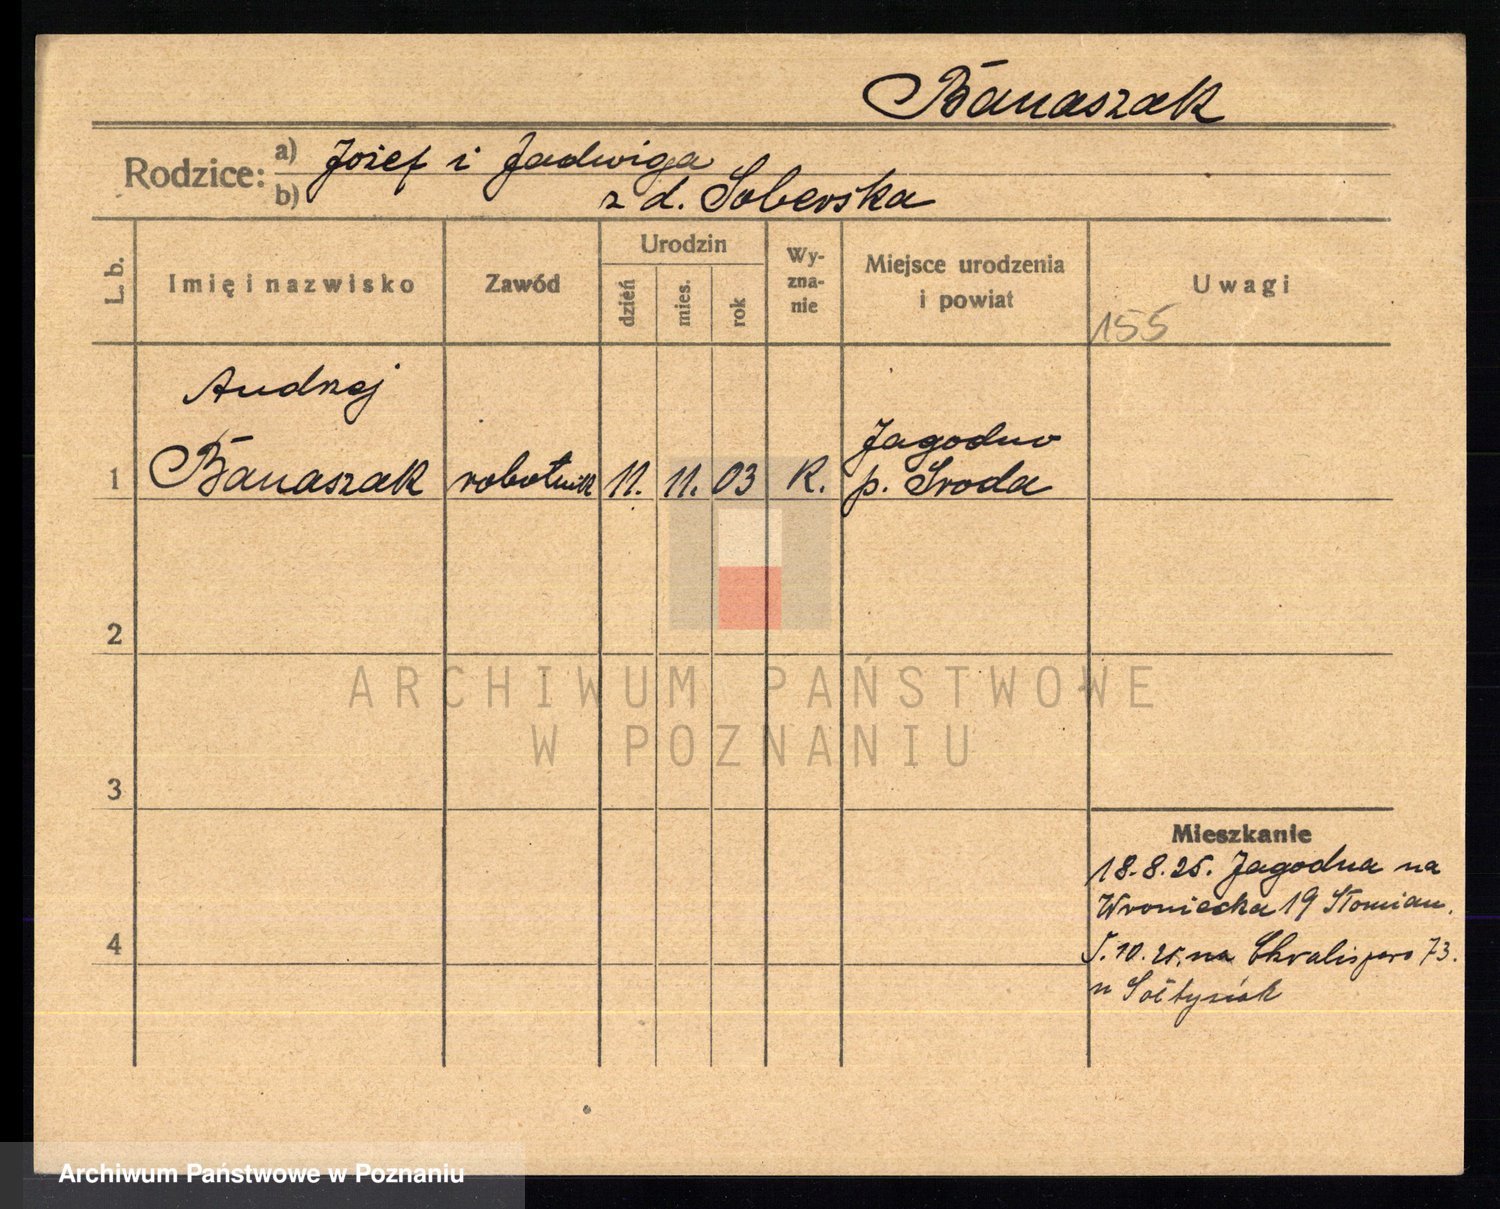 Banaszak
Rodzice: a) Józef i Jadwiga
b) z d. Soberska
L. b.
Imię i nazwisko
Zawód
Urodzin
dzień
mies.
rok
Wy-
zna-
nie
Miejsce urodzenia
i powiat
Uwagi
155
Andrzej
1 Banaszak robotnik 11. 11. 03 K. Jagodno
p. Sroda
2
3
4
Mieszkanie
18.8.25. Jagodna na
Wroniecka 19 Słomian.
5.10.25. na 73.
u Sołtysiak
ARCHIWUM PAŃSTWOWE
W POZNANIU
Archiwum Państwowe w Poznaniu